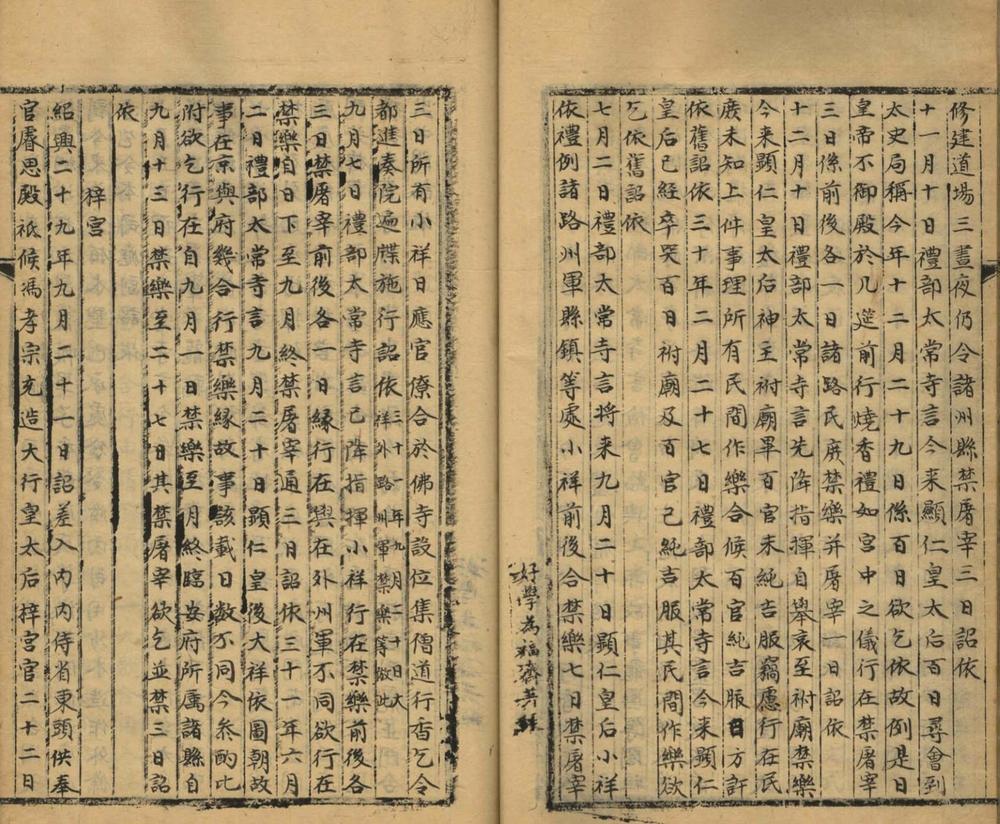 修建道場三晝夜仍令諸州縣禁屠宰三日詔依
十一月十日禮部太常寺言今来顯仁皇太后百日尋會到
太史局稱今年十二月二十九日係百日欲乞依故例是日
皇帝不御殿於几筵前行燒香禮如宮中之儀行在禁屠宰
三日係前後各一日諸路民庶禁樂并屠宰一日詔依
十二月十日禮部太常寺言先降指揮自舉哀至祔廟禁樂
今来顯仁皇太后神主祔廟畢百官未純吉服竊慮行在民
庶未知上件事理所有民間作樂合候百官純吉服日方許
依舊詔依三十年二月二十七日禮部太常寺言今来顯仁
皇后已經卒哭百日祔廟及百官已純吉服其民間作樂欲
乞依舊詔依
七月二日禮部太常寺言将来九月二十日顯仁皇后小祥
依禮例諸路州軍縣鎮等處小祥前後合禁樂七日禁屠宰
好學為福齋美
三日所有小祥日應官僚合於佛寺設位集僧道行香乞令
都進奏院遍牒施行詔依三十一年九月二十日大祥外路州軍禁樂等放此
九月七日禮部太常寺言已降指揮小祥行在禁樂前後各
三日禁屠宰前後各一日緣行在與在外州軍不同欲行在
禁樂自日下至九月終禁屠宰通三日詔依三十一年六月
二日禮部太常寺言九月二十日顯仁皇後大祥依國朝故
事在京與府幾合行禁樂緣故事該載日數不同今叅酌比
附欲乞行在自九月一日禁樂至月終臨安府所属諸縣自
九月十三日禁樂至二十七日其禁屠宰欲乞並禁三日詔
依
梓宮
紹興二十九年九月二十一日詔差入內內侍省東頭供奉
官睿思殿祗候馮孝宗充造大行皇太后梓宮官二十二日